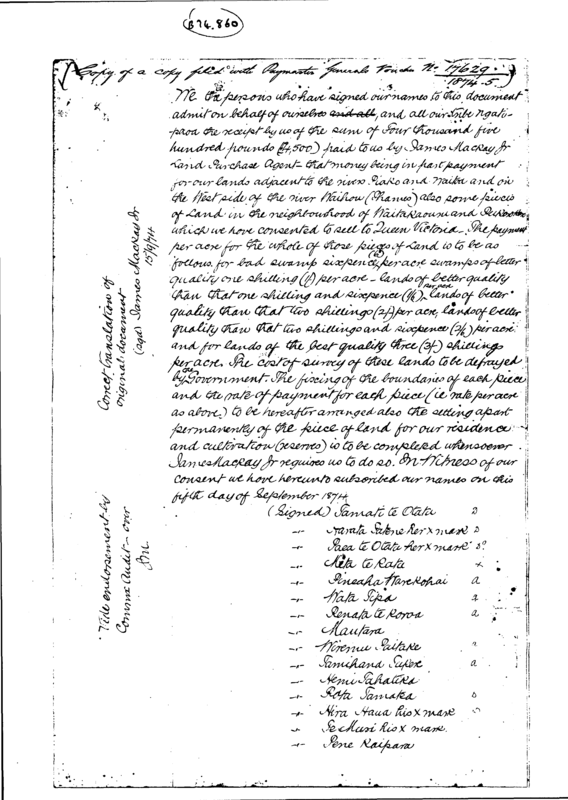 874.860
(Copy of a copy filed with Paymaster Generals Voucher No 17629.
1874-5)
We the persons who have signed our names to this document
admit on behalf of ourselves and all, and all our tribe Ngati-
paoa the receipt by us of the sum of Four thousand five
hundred pounds (£4,500) paid to us by James Mackay Jr
Land Purchase Agent - that money being in part payment
for our lands adjacent to the rivers Piako and Waika and on
the West side of the river Waihou (Thames) also some pieces
of Land in the neighbourhood of Waitakaruru and
which we have consented to sell to Queen Victoria. The payment
per acre for the whole of those pieces of Land is to be as
follows. for bad swamp sixpence per acre swamps of better
quality one shilling (1/) per acre - lands of better quality
than that one shilling and sixpence (1/6) per acre. lands of better
quality than that two shillings (2/) per acre, lands of better
quality than that two shillings and sixpence (2/6) per acre
and for lands of the best quality three (3/) shillings
per acre. The cost of survey of these lands to be defrayed
by the Government. The fixing of the boundaries of each piece
and the rate of payment for each piece (ie rate per acre
as above) to be hereafter arranged also the setting apart
permanently of the piece of land for our residence
and cultivation (reserves) is to be completed whensoever
James Mackay Jr requires us to do so. In Witness of our
consent we have hereunto subscribed our names on this
fifth day of September 1874
(Signed) Tamati te Otata
Harata Patene her x mark
Paea te Otata her x mark
Meta te Rata
Pineaha Warekohai
Wata Tipa
Renata te Koroa
Mautara
Wiremu Paitake
Tamihana Tukere
Hemi Pahatika
Rota Tamaka
Hira Haua his x mark
Te Muri his x mark.
Pene Kaipara
Correct translation of
original document
(sgd) James Mackay Jr
15/9/74
Vide endorsement by
Commr Audit - over